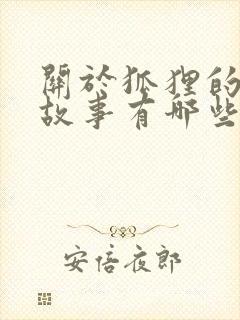 關於狐狸的
故事有哪些
安倍夜郎